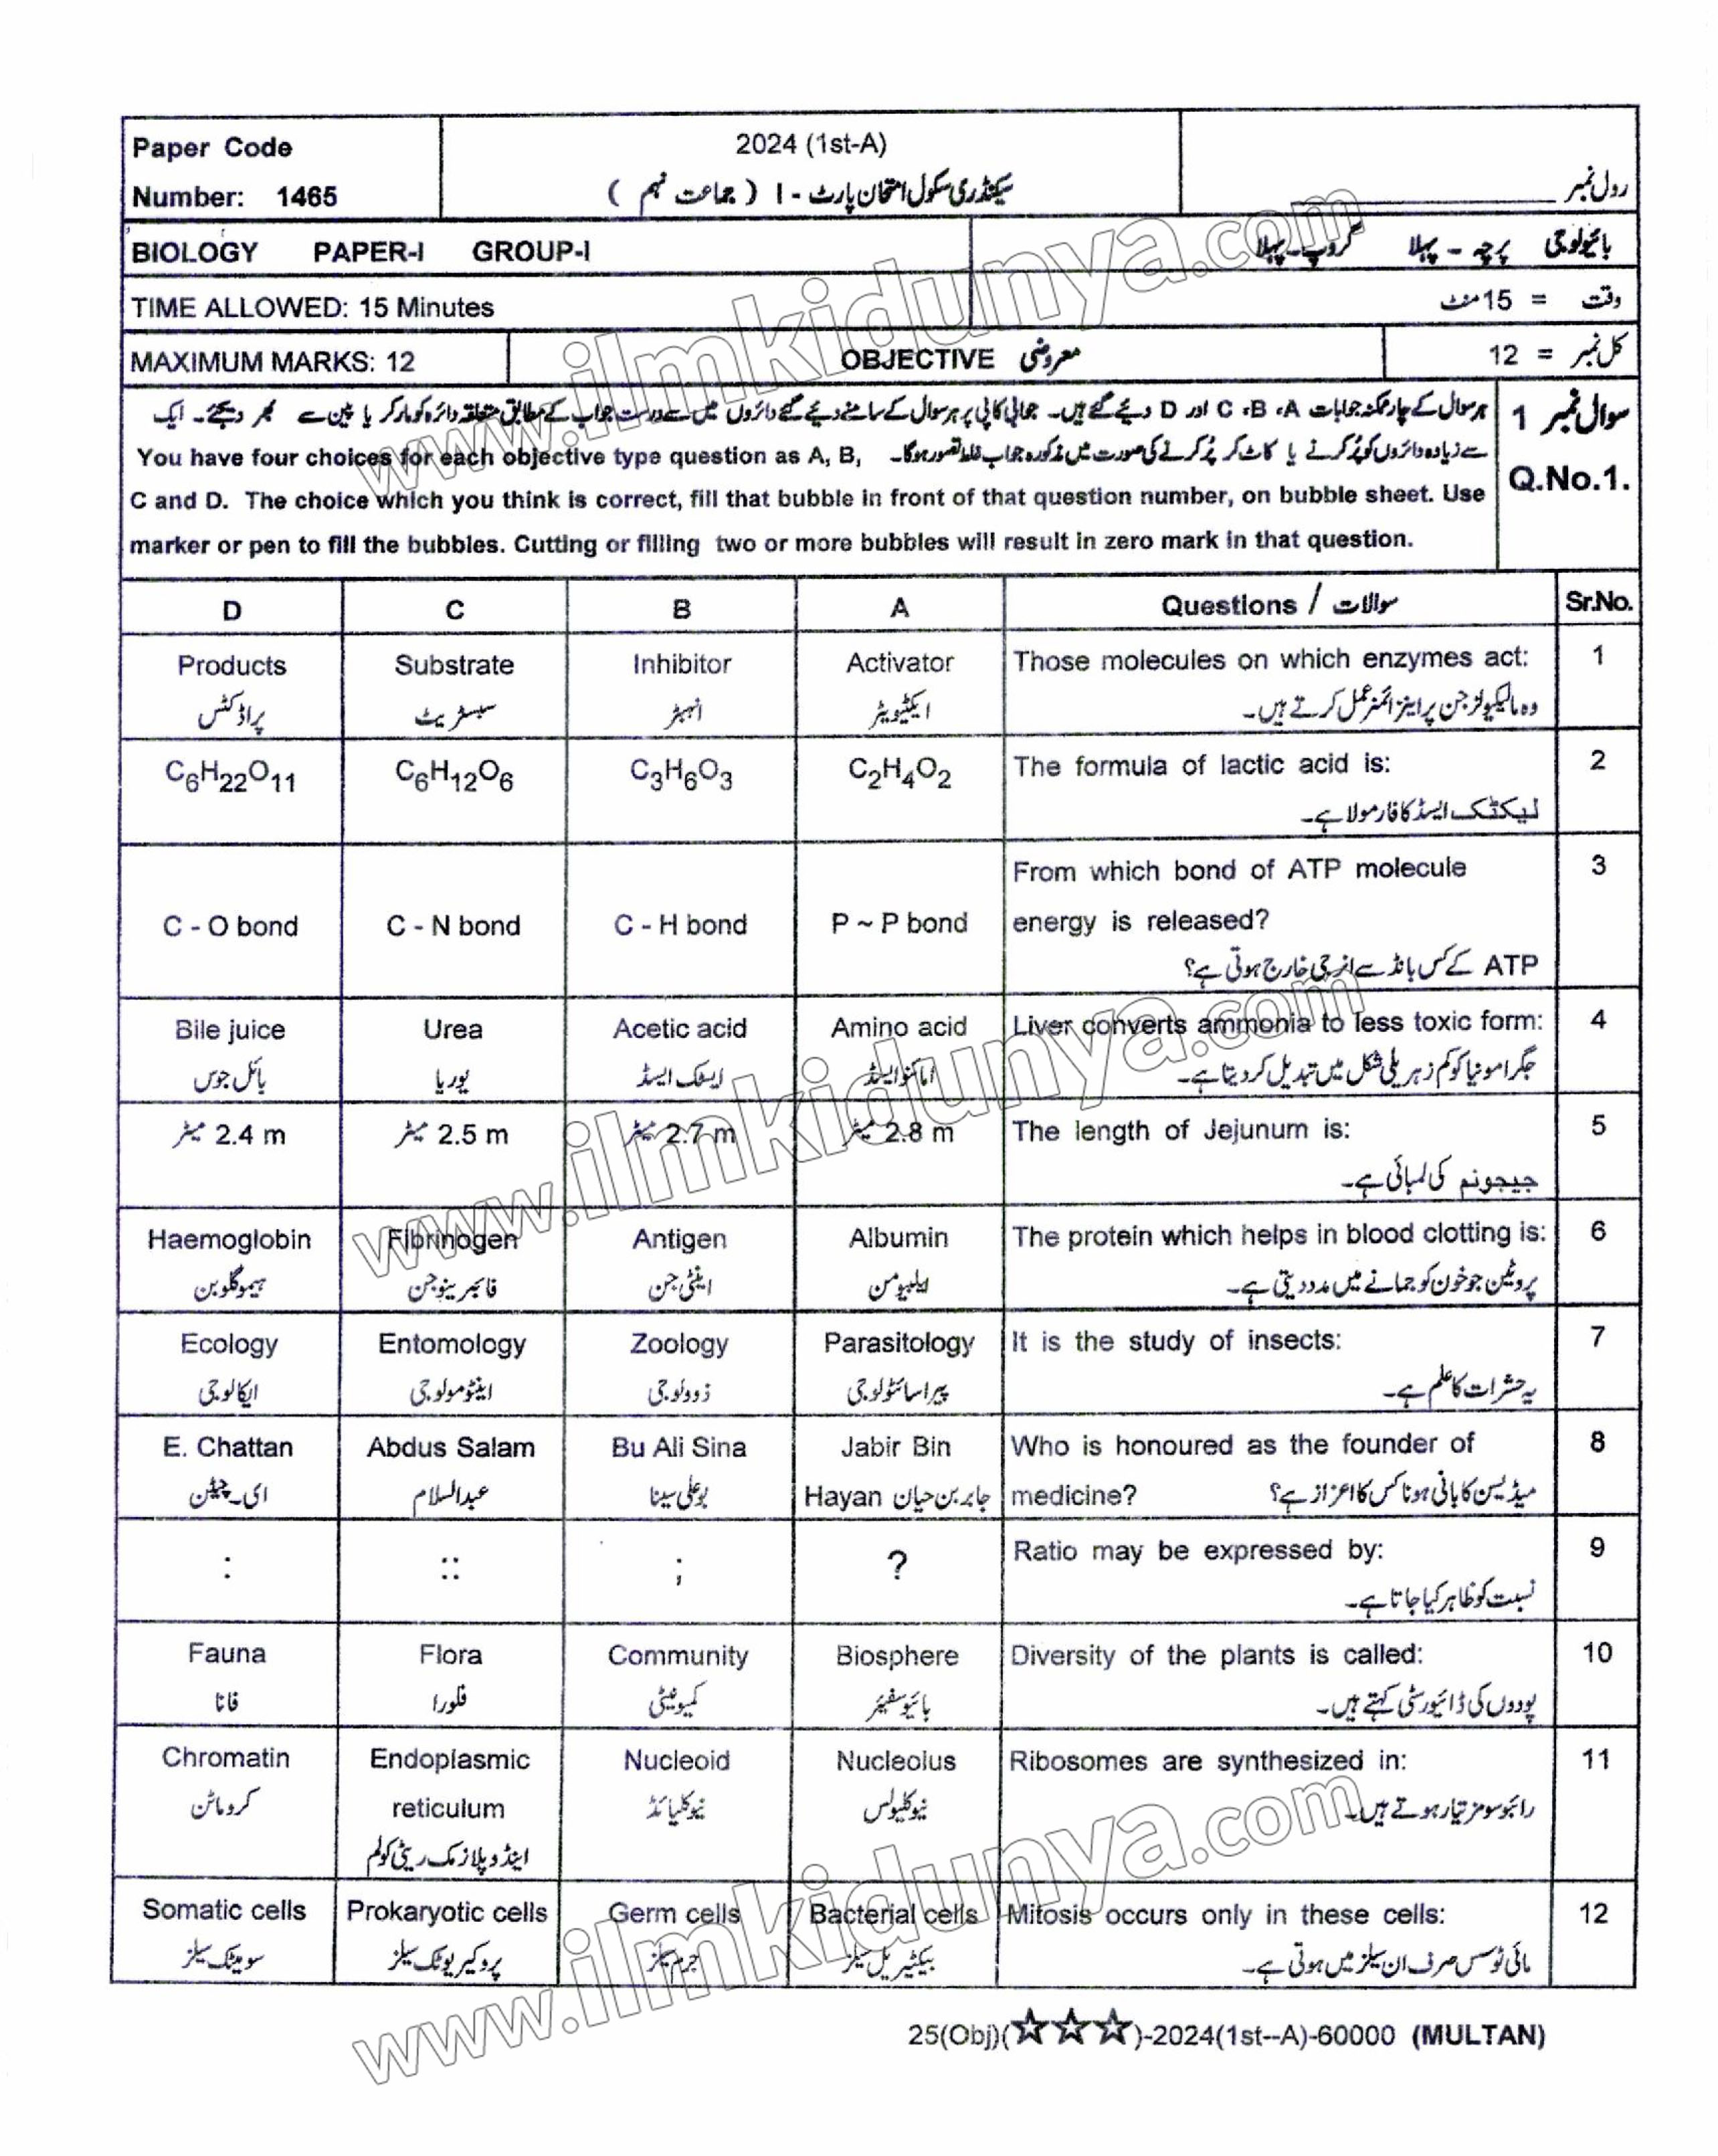 Paper Code
Number: 1465
2024 (1st-A)
سیکنڈری سکول امتحان پارٹ - I ( جماعت نہم )
رول نمبر
BIOLOGY PAPER-I GROUP-I
بائیولوجی پرچہ - پہلا گروپ - پہلا
TIME ALLOWED: 15 Minutes
وقت = 15 منٹ
MAXIMUM MARKS: 12
OBJECTIVE معروضی
کل نمبر = 12
سوال نمبر 1
Q.No.1.
ہر سوال کے چار ممکنہ جوابات A، B، C اور D دیئے گئے ہیں۔ جوابی کاپی پر ہر سوال کے سامنے دیئے گئے دائروں میں سے درست جواب کے مطابق متعلقہ دائرہ کو مارکر یا پین سے بھر دیجئے۔ ایک
سے زیادہ دائروں کو پُر کرنے یا کاٹ کر پُر کرنے کی صورت میں مذکورہ جواب غلط تصور ہوگا۔ You have four choices for each objective type question as A, B,
C and D. The choice which you think is correct, fill that bubble in front of that question number, on bubble sheet. Use
marker or pen to fill the bubbles. Cutting or filling two or more bubbles will result in zero mark in that question.
D C B A Questions / سوالات Sr.No.
Products Substrate Inhibitor Activator Those molecules on which enzymes act: 1
پراڈکٹس سبسٹریٹ انہبٹر ایکٹیویٹر وہ مالیکیولز جن پر اینزائمز عمل کرتے ہیں۔
C6H22O11 C6H12O6 C3H6O3 C2H4O2 The formula of lactic acid is: 2
لیکٹک ایسڈ کا فارمولا ہے۔
From which bond of ATP molecule 3
C - O bond C - N bond C - H bond P ~ P bond energy is released?
ATP کے کس بانڈ سے انرجی خارج ہوتی ہے؟
Bile juice Urea Acetic acid Amino acid Liver converts ammonia to less toxic form: 4
بائل جوس یوریا ایسٹک ایسڈ امائنو ایسڈ جگر امونیا کو کم زہریلی شکل میں تبدیل کر دیتا ہے۔
2.4 m میٹر 2.5 m میٹر 2.7 m میٹر 2.8 m میٹر The length of Jejunum is: 5
جیجونم کی لمبائی ہے۔
Haemoglobin Fibrinogen Antigen Albumin The protein which helps in blood clotting is: 6
ہیموگلوبن فائبرینوجن اینٹی جن ایلبیومن پروٹین جو خون کو جمانے میں مدد دیتی ہے۔
Ecology Entomology Zoology Parasitology It is the study of insects: 7
ایکالوجی اینٹومولوجی زوولوجی پیراسائٹولوجی یہ حشرات کا علم ہے۔
E. Chattan Abdus Salam Bu Ali Sina Jabir Bin Who is honoured as the founder of 8
ای۔ چیٹن عبدالسلام بوعلی سینا Hayan جابر بن حیان medicine? میڈیسن کا بانی ہونا کس کا اعزاز ہے؟
: :: ; ? Ratio may be expressed by: 9
نسبت کو ظاہر کیا جاتا ہے۔
Fauna Flora Community Biosphere Diversity of the plants is called: 10
فانا فلورا کمیونیٹی بائیوسفیئر پودوں کی ڈائیورسٹی کہتے ہیں۔
Chromatin Endoplasmic Nucleoid Nucleolus Ribosomes are synthesized in: 11
کروماٹن reticulum نیوکلیائڈ نیوکلیولس رائبوسومز تیار ہوتے ہیں۔
اینڈوپلازمک ریٹی کولم
Somatic cells Prokaryotic cells Germ cells Bacterial cells Mitosis occurs only in these cells: 12
سومیٹک سیلز پروکیریوٹک سیلز جرم سیلز بیکٹیریل سیلز مائی ٹوسس صرف ان سیلز میں ہوتی ہے۔
25(Obj)(☆☆☆)-2024(1st--A)-60000 (MULTAN)
www.ilmkidunya.com
www.ilmkidunya.com
www.ilmkidunya.com